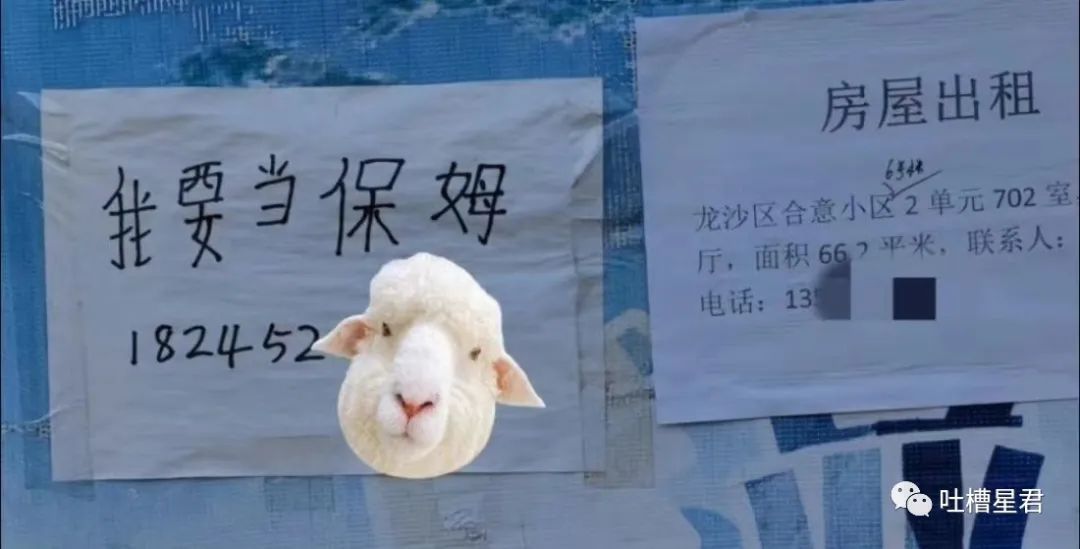 我要当保姆
182452
房屋出租
龙沙区合意小区2单元702室
厅，面积66.2平米，联系人：
电话：13
吐槽星君